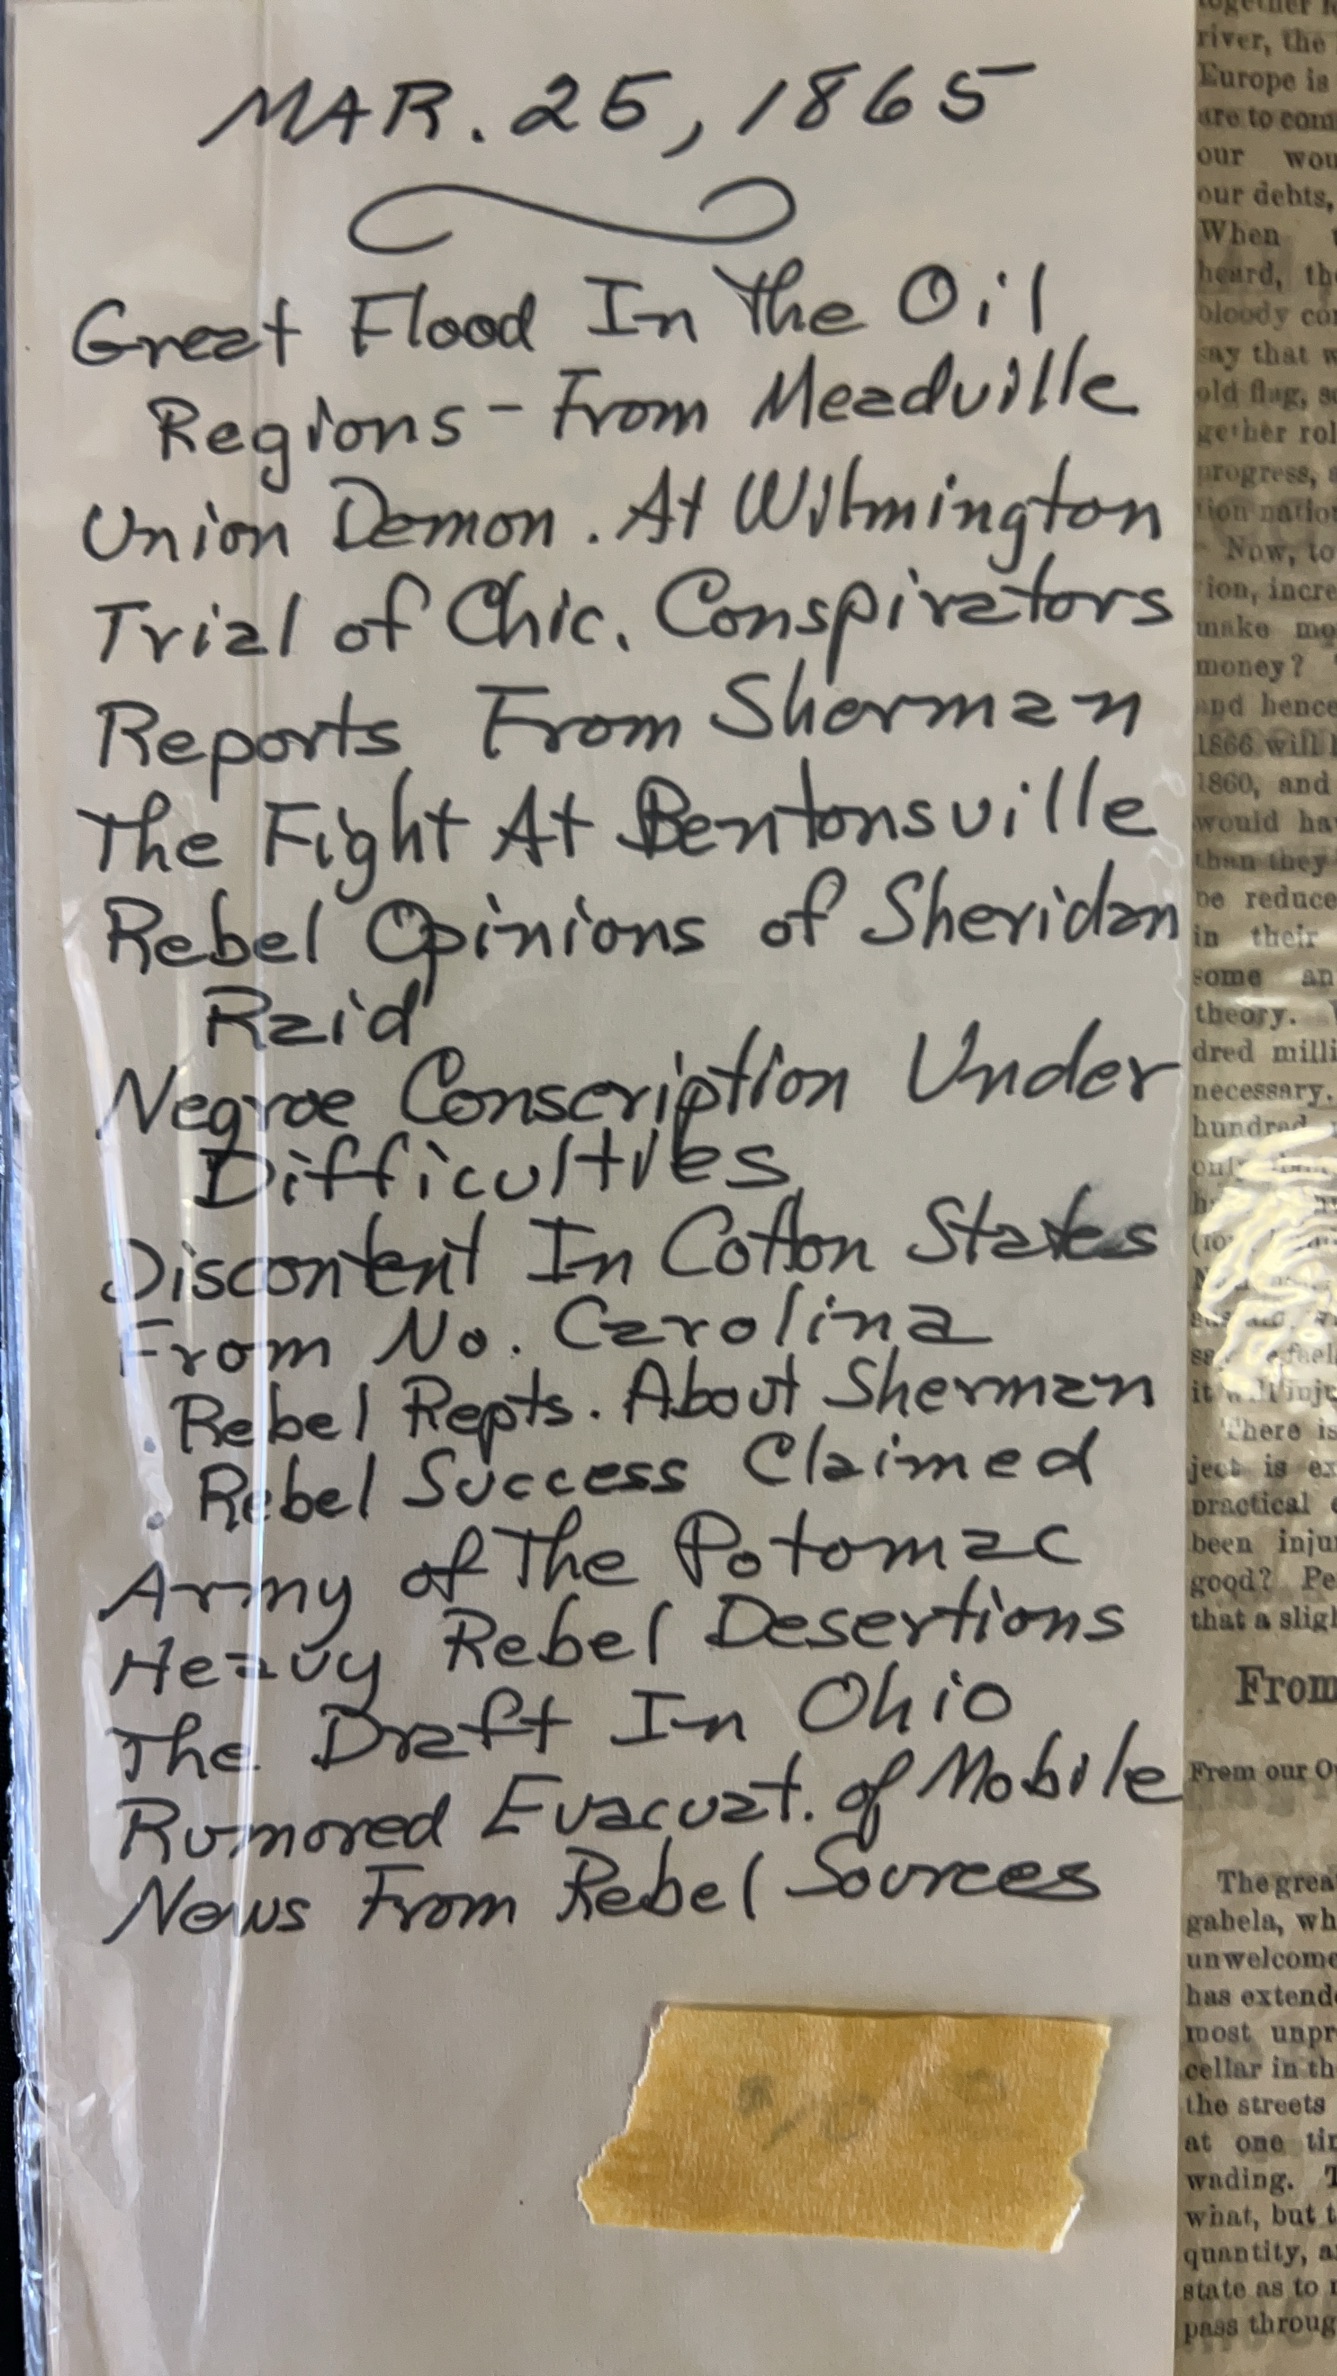 MAR. 25, 1865
Great Flood In The Oil
Regions - From Meadville
Union Demon. At Wilmington
Trial of Chic. Conspirators
Reports From Sherman
The Fight At Bentonsville
Rebel Opinions of Sheridan
Raid
Negroe Conscription Under
Difficulties
Discontent In Cotton States
From No. Carolina
Rebel Repts. About Sherman
Rebel Success Claimed
Army of The Potomac
Heavy Rebel Desertions
The Draft In Ohio
Rumored Evacuat. of Mobile
News From Rebel Sources
river, the
Europe is
are to com
our wou
our debts,
When
heard, the
bloody co
say that w
old flag, s
gether rol
progress, a
tion nation
Now, to
ion, incre
make mo
money?
and hence
1866 will
1860, and
would ha
than they
be reduce
in their
some an
theory.
dred milli
necessary.
hundred
There is
ject is ex
practical
been inju
good? Pe
that a sligh
From
From our O
The grea
gabela, wh
unwelcome
has extend
most unpr
cellar in th
the streets
at one tim
wading. T
what, but t
quantity, a
state as to
pass throug